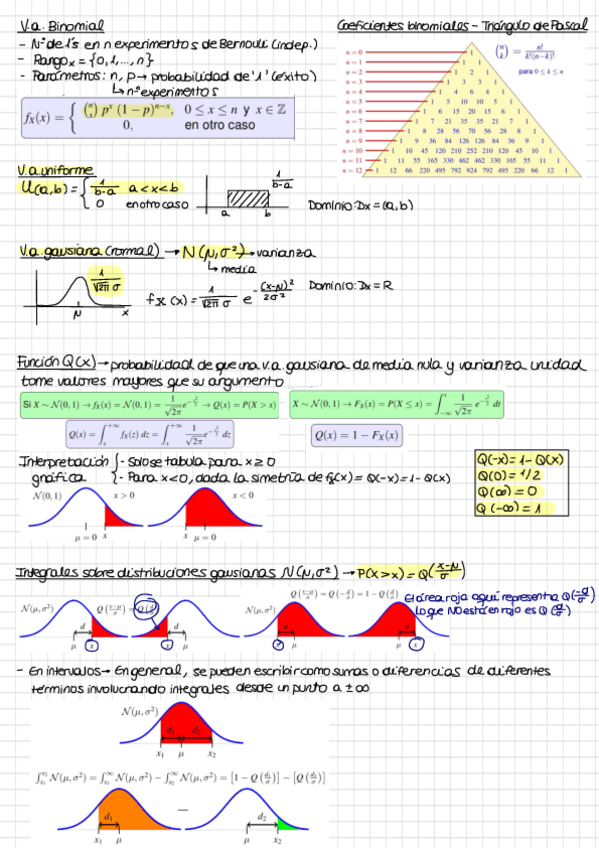 V.a. Binomial
- Nº de 1's en n experimentos de Bernouli (indep.)
- Rango_x = {0,1,...,n}
- Parámetros: n, p → probabilidad de '1' (éxito)
↳ nº experimentos
f_X(x) = { (n x) p^x (1 − p)^{n−x}, 0 ≤ x ≤ n y x ∈ ℤ
0, en otro caso
Coeficientes binomiales - Triángulo de Pascal
(n k) = n! / k!(n−k)!
para 0 ≤ k ≤ n
n = 0 1
n = 1 1 1
n = 2 1 2 1
n = 3 1 3 3 1
n = 4 1 4 6 4 1
n = 5 1 5 10 10 5 1
n = 6 1 6 15 20 15 6 1
n = 7 1 7 21 35 35 21 7 1
n = 8 1 8 28 56 70 56 28 8 1
n = 9 1 9 36 84 126 126 84 36 9 1
n = 10 1 10 45 120 210 252 210 120 45 10 1
n = 11 1 11 55 165 330 462 462 330 165 55 11 1
n = 12 1 12 66 220 495 792 924 792 495 220 66 12 1
V.a. uniforme
U(a,b) = { 1/b-a a < x < b
0 en otro caso
1/b-a
a b
Dominio: Dx = (a,b)
V.a. gausiana (normal) → N(μ,σ²) → varianza
↳ media
1/√2π σ
μ x
fx(x) = 1/√2π σ e^{-(x-μ)²/2σ²}
Dominio: Dx = R
Función Q(x) → probabilidad de que una v.a. gausiana de media nula y varianza unidad
tome valores mayores que su argumento
Si X ∼ N(0,1) → f_X(x) = N(0,1) = 1/√2π e^{−x²/2} → Q(x) = P(X > x)
X ∼ N(0,1) → F_X(x) = P(X ≤ x) = ∫_{−∞}^{x} 1/√2π e^{−t²/2} dt
Q(x) = ∫_x^{+∞} f_X(z) dz = ∫_x^{+∞} 1/√2π e^{−z²/2} dz
Q(x) = 1 − F_X(x)
Interpretación { - Solo se tabula para x ≥ 0
gráfica { - Para x<0, dada la simetría de fx(x) = Q(-x) = 1 - Q(x)
Q(-x) = 1 - Q(x)
Q(0) = 1/2
Q(∞) = 0
Q(-∞) = 1
N(0,1) x > 0 x < 0
μ = 0 x x μ = 0
Integrales sobre distribuciones gausianas N(μ,σ²) → P(X > x) = Q(x-μ/σ)
N(μ,σ²) Q(x−μ/σ) = Q(d/σ)
d d
μ x x μ
Q(x−μ/σ) = Q(−d/σ) = 1 − Q(d/σ)
N(μ,σ²)
d d
x μ μ x
El área roja aquí representa Q(-d/σ)
Lo que NO está en rojo es Q(d/σ)
- En intervalos → En general, se pueden escribir como sumas o diferencias de diferentes
términos involucrando integrales desde un punto a ±∞
N(μ,σ²)
d₁ d₂
x₁ μ x₂
∫_{x₁}^{x₂} N(μ,σ²) = ∫_{x₁}^{∞} N(μ,σ²) − ∫_{x₂}^{∞} N(μ,σ²) = [1 − Q(d₁/σ)] − [Q(d₂/σ)]
d₁ − d₂
x₁ μ μ x₂